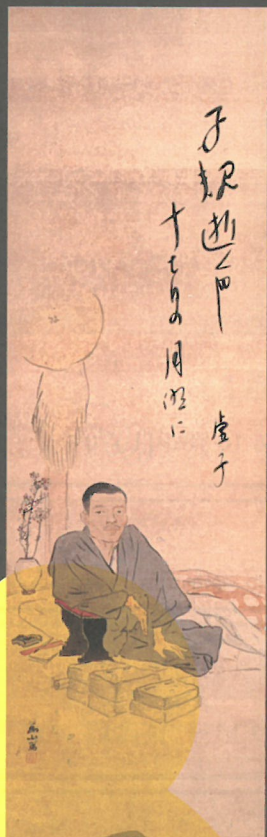 子規逝くや
十七日の月明に
虚子
為山